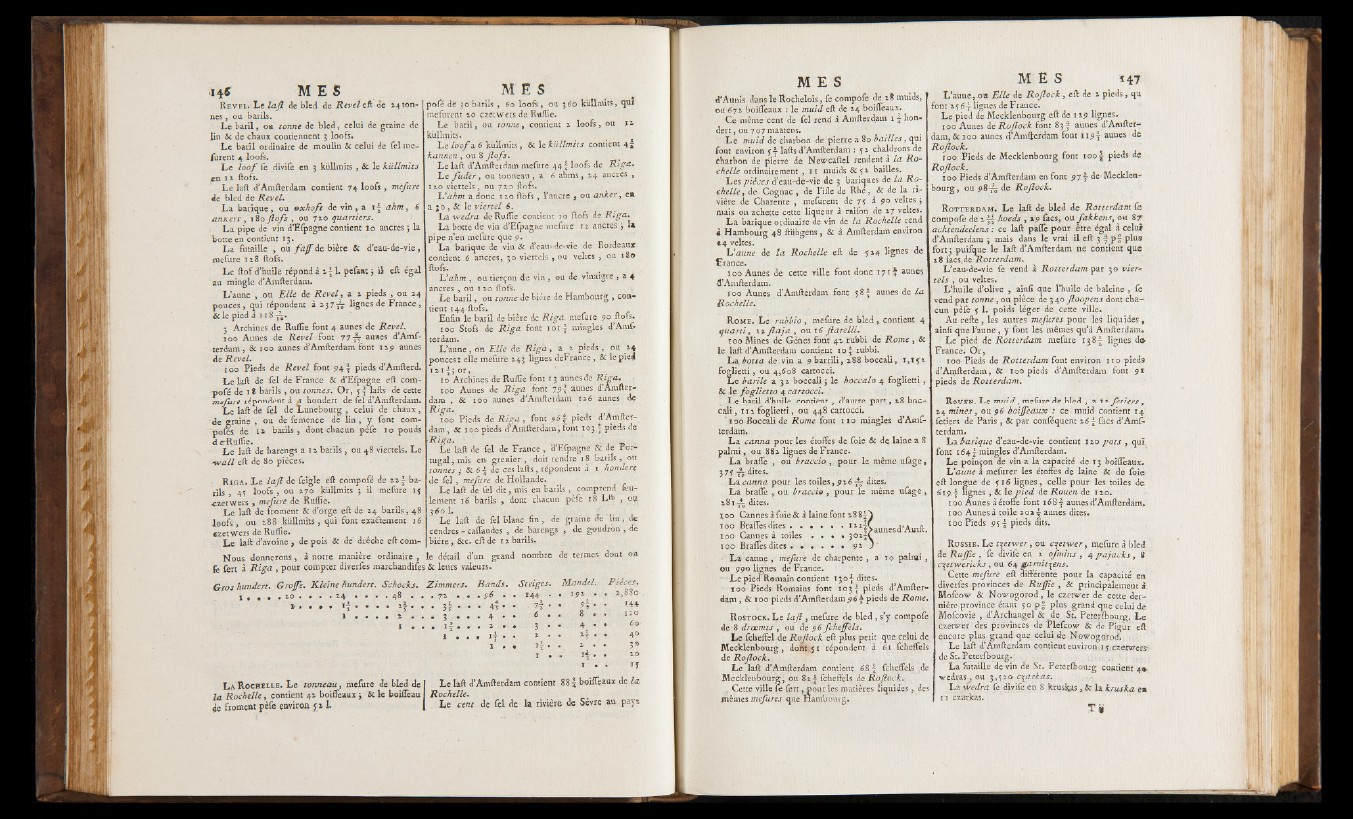 146 MES MES
REVEL. Le last de bled de Revel est de 24 ton-
nes, ou barils.
Le baril, ou tonne de bled, celui de graine de
lin & de chaux contiennent 3 loofs.
Le baril ordinaire de moulin & celui de sel me-
surent 4 loofs.
Le loof se divise en 3 küllmits, & le küllmits
en 12 stofs.
Le last d'Amsterdam contient 74 loofs, mesure
de bled de Revel.
La barique, ou oxhoft de vin, a 1½ ahm, 6
ankers, 180 stofs, ou 720 quartiers.
La pipe de vin d'Espagne contient 10 ancres; la
botte en contient 13.
La futaille, ou fass de bière & d'eau-de-vie,
mesure 128 stofs.
Le stof d'huile répond à l. pesant; il est égal
au mingle d'Amsterdam.
L'aune, ou Elle de Revel, a 2 pieds, ou 24
pouces, qui répondent à lignes de France,
& le pied à
3 Archines de Russie font 4 aunes de Revel.
100 Aunes de Revel font aunes d'Ams-
terdam, & 100 aunes d'Amsterdam font 129 aunes
de Revel.
100 Pieds de Revel font pieds d'Amsterd.
Le last de sel de France & d'Espagne est com-
posé de 18 barils, ou tonnes. Or, lasts de cette
mesure répondent à hondert de sel d'Amsterdam.
Le last de sel de Lunebourg, celui de chaux,
de graine, ou de semence de lin, y sont com-
posés de 12 barils, dont chacun pèse 10 pouds
de Russie.
Le last de harengs a 12 barils, ou 48 viertels. Le
wall est de 80 pièces.
RIGA. Le last de seigle est composé de 22½ ba-
rils, 45 loofs, ou 270 küllmits; il mesure 15
czetwers, mesure de Russie.
Le last de froment & d'orge est de 24 barils, 48
loofs, ou 288 küllmits, qui font exactement 16
czetwers de Russie.
Le last d'avoine, de pois & de drêche est com-
posé de 30 barils, 60 loofs, ou 360 küllmits, qui
mesurent 20 czetwers de Russie.
Le baril, ou tonne, contient 2 loofs, ou 12
küllmits.
Le loof a 6 küllmits, & le küllmits contient
kannen, ou 8 stofs.
Le last d'Amsterdam mesure loofs de Riga.
Le fuder, ou tonneau, a 6 ahms, 24 ancres,
120 viertels, ou 720 stofs.
L'ahm a donc 120 stofs, l'ancre, ou anker, en
a 30, & le viertel 6.
La wedra de Russie contient 10 stofs de Riga.
La botte de vin d'Espagne mesure 12 ancres; la
pipe n'en mesure que 9.
La barique de vin & d'eau-de-vie de Bordeaux
contient 6 ancres, 30 viertels, ou veltes, ou 180
stofs.
L'ahm, ou tierçon de vin, ou de vinaigre, a 4
ancres, ou 120 stofs.
Le baril, ou tonne de bière de Hambourg, con-
tient 144 stofs.
Enfin le baril de bière de Riga mesure 90 stofs.
100 Stofs de Riga font mingles d'Ams-
terdam.
L'aune, ou Elle de Riga, a 2 pieds, ou 24
pouces: elle mesure 243 lignes de France, & le pied
121½; or,
10 Archines de Russie font 13 aunes de Riga.
100 Aunes de Riga font aunes d'Amster-
dam, & 100 aunes d'Amsterdam 126 aunes de
Riga.
100 Pieds de Riga, font pieds d'Amster-
dam, & 100 pieds d'Amsterdam, font pieds de
Riga.
Le last de sel de France, d'Espagne & de Por-
tugal, mis en grenier, doit rendre 18 barils, ou
tonnes; & de ces lasts, répondent à 1 hondert
de sel, mesure de Hollande.
Le last de sel dit, mis en barils, comprend seu-
lement 16 barils, dont chacun pèse 18 L℔, ou
360 l.
Le last de sel blanc fin, de graine de lin, de
cendres-cassandes, de harengs, de goudron, de
bière, &c. est de 12 barils.
Nous donnerons, à notre manière ordinaire, le détail d'un grand nombre de termes dont on
se sert à Riga, pour compter diverses marchandises & leurs valeurs.
Gros hundert. Grosse. Kleine hundert. Schocks. Zimmers. Bands. Steiges. Mandel. Pièces.
1 . . . . 20 . . . . . 24 . . . . . 48 . . . 72 . . . 96 . . 144 . . 192 . . 2,880
1 . . . . . 1⅕ . . . . 2⅖ . . 3⅗ . . 4⅘ . . 7⅕ . . 9⅗ . . 144
1 . . . . . 2 . . . 3 . . . 4 . . 6 . . 8 . . 120
1 . . . 1½ . . . 2 . . 3 . . 4 . . 60
1 . . . 1⅓ . . 2 . . 2⅔ . . 40
1 . . 1½ . . 2 . . 30
1 . . 1⅓ . . 20
1 . . 15
LA ROCHELLE. Le tonneau, mesure de bled de
la Rochelle, contient 42 boisseaux; & le boisseau
de froment pèse environ 52 l.
Le last d'Amsterdam contient boisseaux de la
Rochelle.
Le cent de sel de la rivière de Sèvre au pays
MES MES 147
d'Aunis dans le Rochelois, se compose de 28 muids,
ou 672 boisseaux: le muid est de 24 boisseaux.
Ce même cent de sel rend à Amsterdam hon-
dert, ou 707 maatens.
Le muid de charbon de pierre a 80 bailles, qui
font environ lasts d'Amsterdam: 52 chaldrons de
charbon de pierre de Newcastel rendent à la Ro-
chelle ordinairement, 11 muids & 52 bailles.
Les pièces d'eau-de-vie de 3 bariques de la Ro-
chelle, de Cognac, de l'isle de Rhé, & de la ri-
vière de Charente, mesurent de 75 à 90 veltes;
mais on achette cette liqueur à raison de 27 veltes.
La barique ordinaire de vin de la Rochelle rend
à Hambourg 48 stübgens, & à Amsterdam environ
24 veltes.
L'aune de la Rochelle est de 524 lignes de
France.
100 Aunes de cette ville font donc aunes
d'Amsterdam.
100 Aunes d'Amsterdam font aunes de la
Rochelle.
ROME. Le rubbio, mesure de bled, contient 4
quarti, 12 staja, ou 16 starelli.
100 Mines de Gènes font 42 rubbi de Rome, &
le last d'Amsterdam contient rubbi.
La botta de vin a 9 barrili, 288 boccali, 1,152
foglietti, ou 4,608 cartocci.
Le barile a 32 boccali; le boccalo 4 foglietti,
& le foglietto 4 cartocci.
Le baril d'huile contient, d'autre part, 28 boc-
cali, 112 foglietti, ou 448 cartocci.
100 Boccali de Rome font 110 mingles d'Ams-
terdam.
La canna pour les étoffes de soie & de laine a 8
palmi, ou 882 lignes de France.
La brasse, ou braccio, pour le même usage,
dites.
La canna pour les toiles, dites.
La brasse, ou braccio, pour le même usage,
dites.
100 Cannes à soie & à laine font
100 Brasses dites . . . . . .
100 Cannes à toiles . . . .
100 Brasses dites . . . . . . 92
aunes d'Amst.
La canne, mesure de charpente, a 10 palmi,
ou 990 lignes de France.
Le pied Romain contient dites.
100 Pieds Romains font pieds d'Amster-
dam, & 100 pieds d'Amsterdam pieds de Rome.
ROSTOCK. Le last, mesure de bled, s'y compose
de 8 drœmts, ou de 96 scheffels.
Le scheffel de Rostock est plus petit que celui de
Mecklenbourg, dont 51 répondent à 61 scheffels
de Rostock.
Le last d'Amsterdam contient scheffels de
Mecklenbourg, ou scheffels de Rostock.
Cette ville se sert, pour les matières liquides, des
mêmes mesures que Hambourg.
L'aune, ou Elle de Rostock, est de 2 pieds, qui
font lignes de France.
Le pied de Mecklenbourg est de 129 lignes.
100 Aunes de Rostock font aunes d'Amster-
dam, & 100 aunes d'Amsterdam font aunes de
Rostock.
100 Pieds de Mecklenbourg font pieds de
Rostock.
100 Pieds d'Amsterdam en font de Mecklen-
bourg, ou de Rostock.
ROTTERDAM. Le last de bled de Rotterdam se
compose de hoeds, 29 sacs, ou sakkens, ou 87
achtendeelens: ce last passe pour être égal à celui
d'Amsterdam; mais dans le vrai il est p° plus
fort; puisque le last d'Amsterdam ne contient que
28 sacs de Rotterdam.
L'eau-de-vie se vend à Rotterdam par 30 vier-
tels, ou veltes.
L'huile d'olive, ainsi que l'huile de baleine, se
vend par tonne, ou pièce de 340 stoopens dont cha-
cun pèse 5 l. poids léger de cette ville.
Au reste, les autres mesures pour les liquides,
ainsi que l'aune, y sont les mêmes qu'à Amsterdam.
Le pied de Rotterdam mesure lignes de
France. Or,
100 Pieds de Rotterdam font environ 110 pieds
d'Amsterdam, & 100 pieds d'Amsterdam font 91
pieds de Rotterdam.
ROUEN. Le muid, mesure de bled, a 12 setiers,
24 mines, ou 96 boisseaux: ce muid contient 14
setiers de Paris, & par conséquent sacs d'Ams-
terdam.
La barique d'eau-de-vie contient 120 pots, qui
font mingles d'Amsterdam.
Le poinçon de vin a la capacité de 13 boisseaux.
L'aune à mesurer les étoffes de laine & de soie
est longue de 516 lignes, celle pour les toiles de
lignes, & le pied de Rouen de 120.
100 Aunes à étoffe font aunes d'Amsterdam.
100 Aunes à toile aunes dites.
100 Pieds pieds dits.
RUSSIE. Le tzetwer, ou czetwer, mesure à bled
de Russie, se divise en 2 osmins, 4 pajacks, 8
czetwericks, ou 64 garnitzens.
Cette mesure est différente pour la capacité en
diverses provinces de Russie, & principalement à
Moscow & Nowogorod, le czetwer de cette der-
nière province étant 50 p° plus grand que celui de
Moscovie, d'Archangel & de St. Petersbourg. Le
czetwer des provinces de Plescow & de Pigur est
encore plus grand que celui de Nowogorod.
Le last d'Amsterdam contient environ 15 czetwers
de St. Petersbourg.
La futaille de vin de St. Petersbourg contient 40
wedras, ou 3,520 czarkas.
La wedra se divise en 8 kruskas, & la kruska en
11 czarkas.
T ij